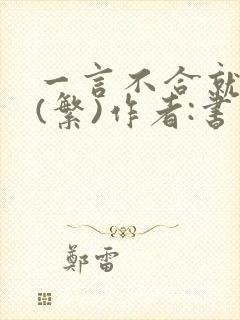 一言不合就
(繁)作者:書
鄭雷